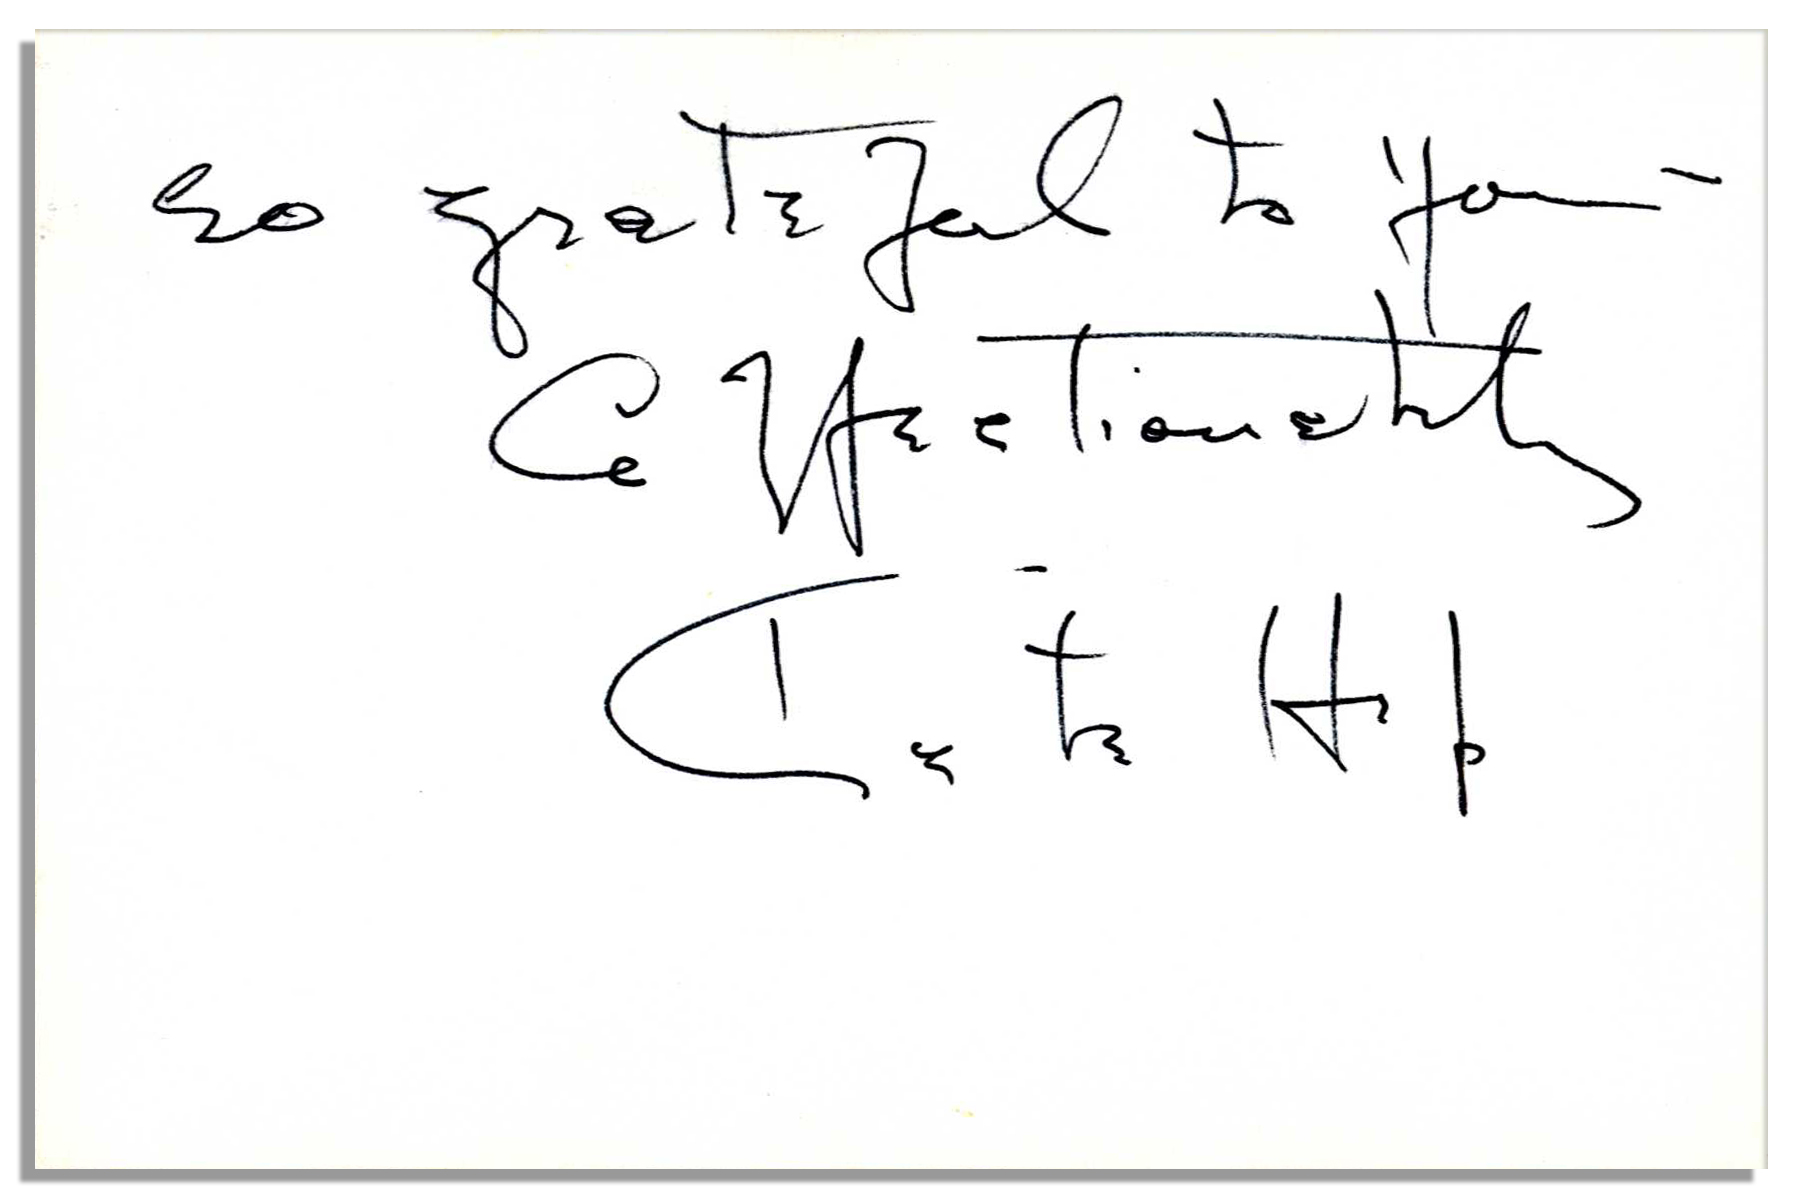 so grateful to you -
Affectionately
Kate Hep